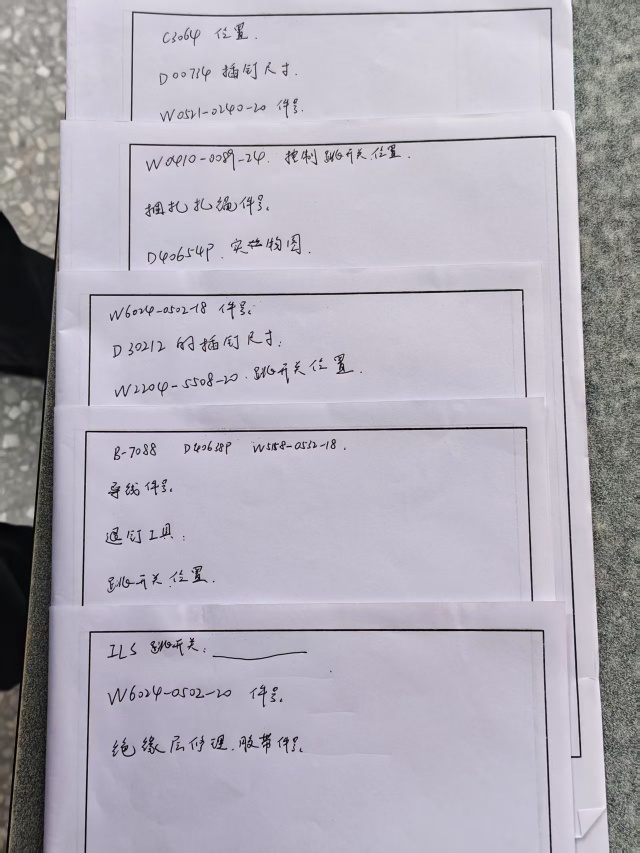 C3064 位置.
D00734 插钉尺寸.
W0521-0240-20 件号.
W0410-0089-24. 控制跳开关位置.
捆扎扎绳件号.
D40654P. 实物图.
W6024-0502-18 件号.
D30212 的插钉尺寸.
W2204-5508-20. 跳开关位置.
B-7088 D40638P W5158-0552-18.
导线件号.
退钉工具.
跳开关位置.
ILS 跳开关:
W6024-0502-20 件号.
绝缘层修理.胶带件号.